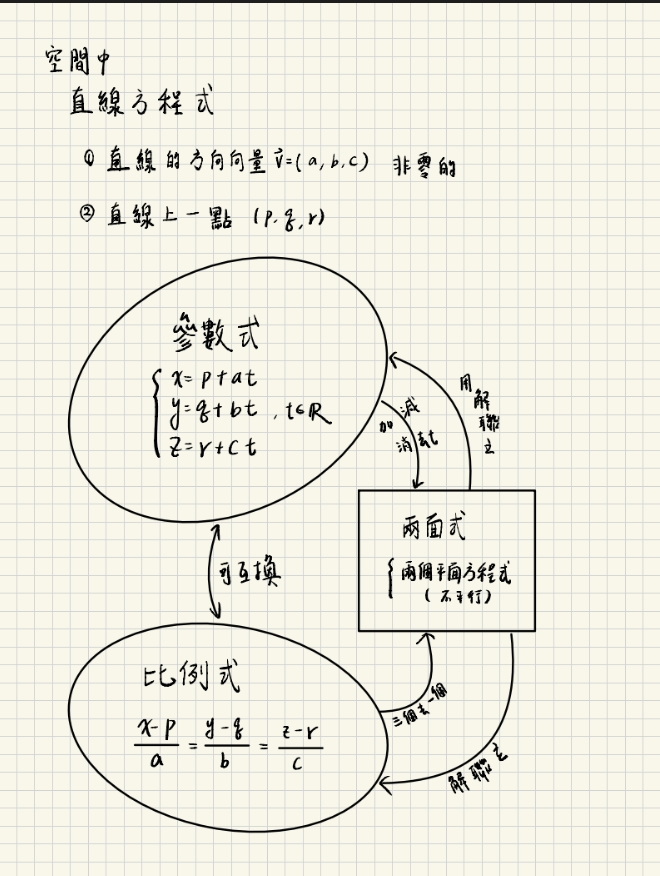 空間中
直線方程式
① 直線的方向向量 v⃗=(a,b,c) 非零的
② 直線上一點 (p,q,r)
參數式
x=p+at
y=q+bt , t∈R
z=r+ct
加減
消去t
用解聯立
兩面式
兩個平面方程式
(不平行)
可互換
比例式
x-p/a = y-q/b = z-r/c
三個去一個
解聯立